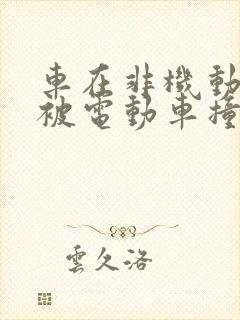 車在非機動
被電動車撞
雲久洛